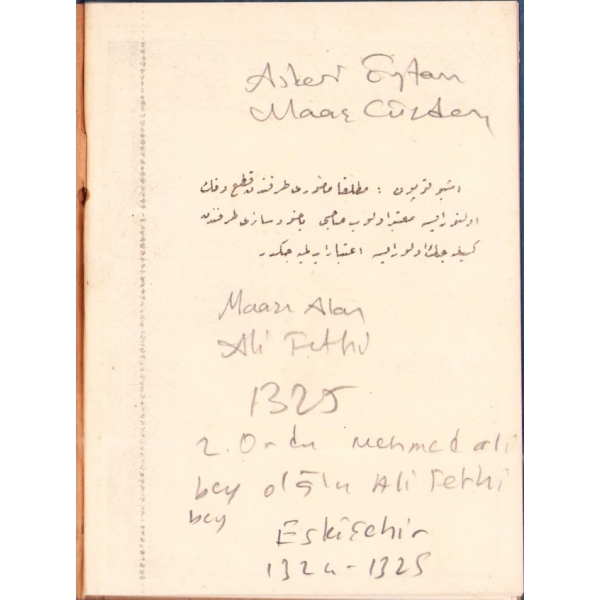 Askeri Eytam
Maaş Cüzdanı
اشبو قوپون : مطلقا مأموری طرفندن قطع وفك
اولنورايسه معتبر اولوب صاحبی ياخود سائری طرفندن
كسيله جك اولورايسه اعتبار ايدلميه جكدر
Maaşı Alan
Ali Fethi
1325
2. Ordu Mehmed Ali
bey oğlu Ali Fethi
bey
Eskişehir
1324-1325